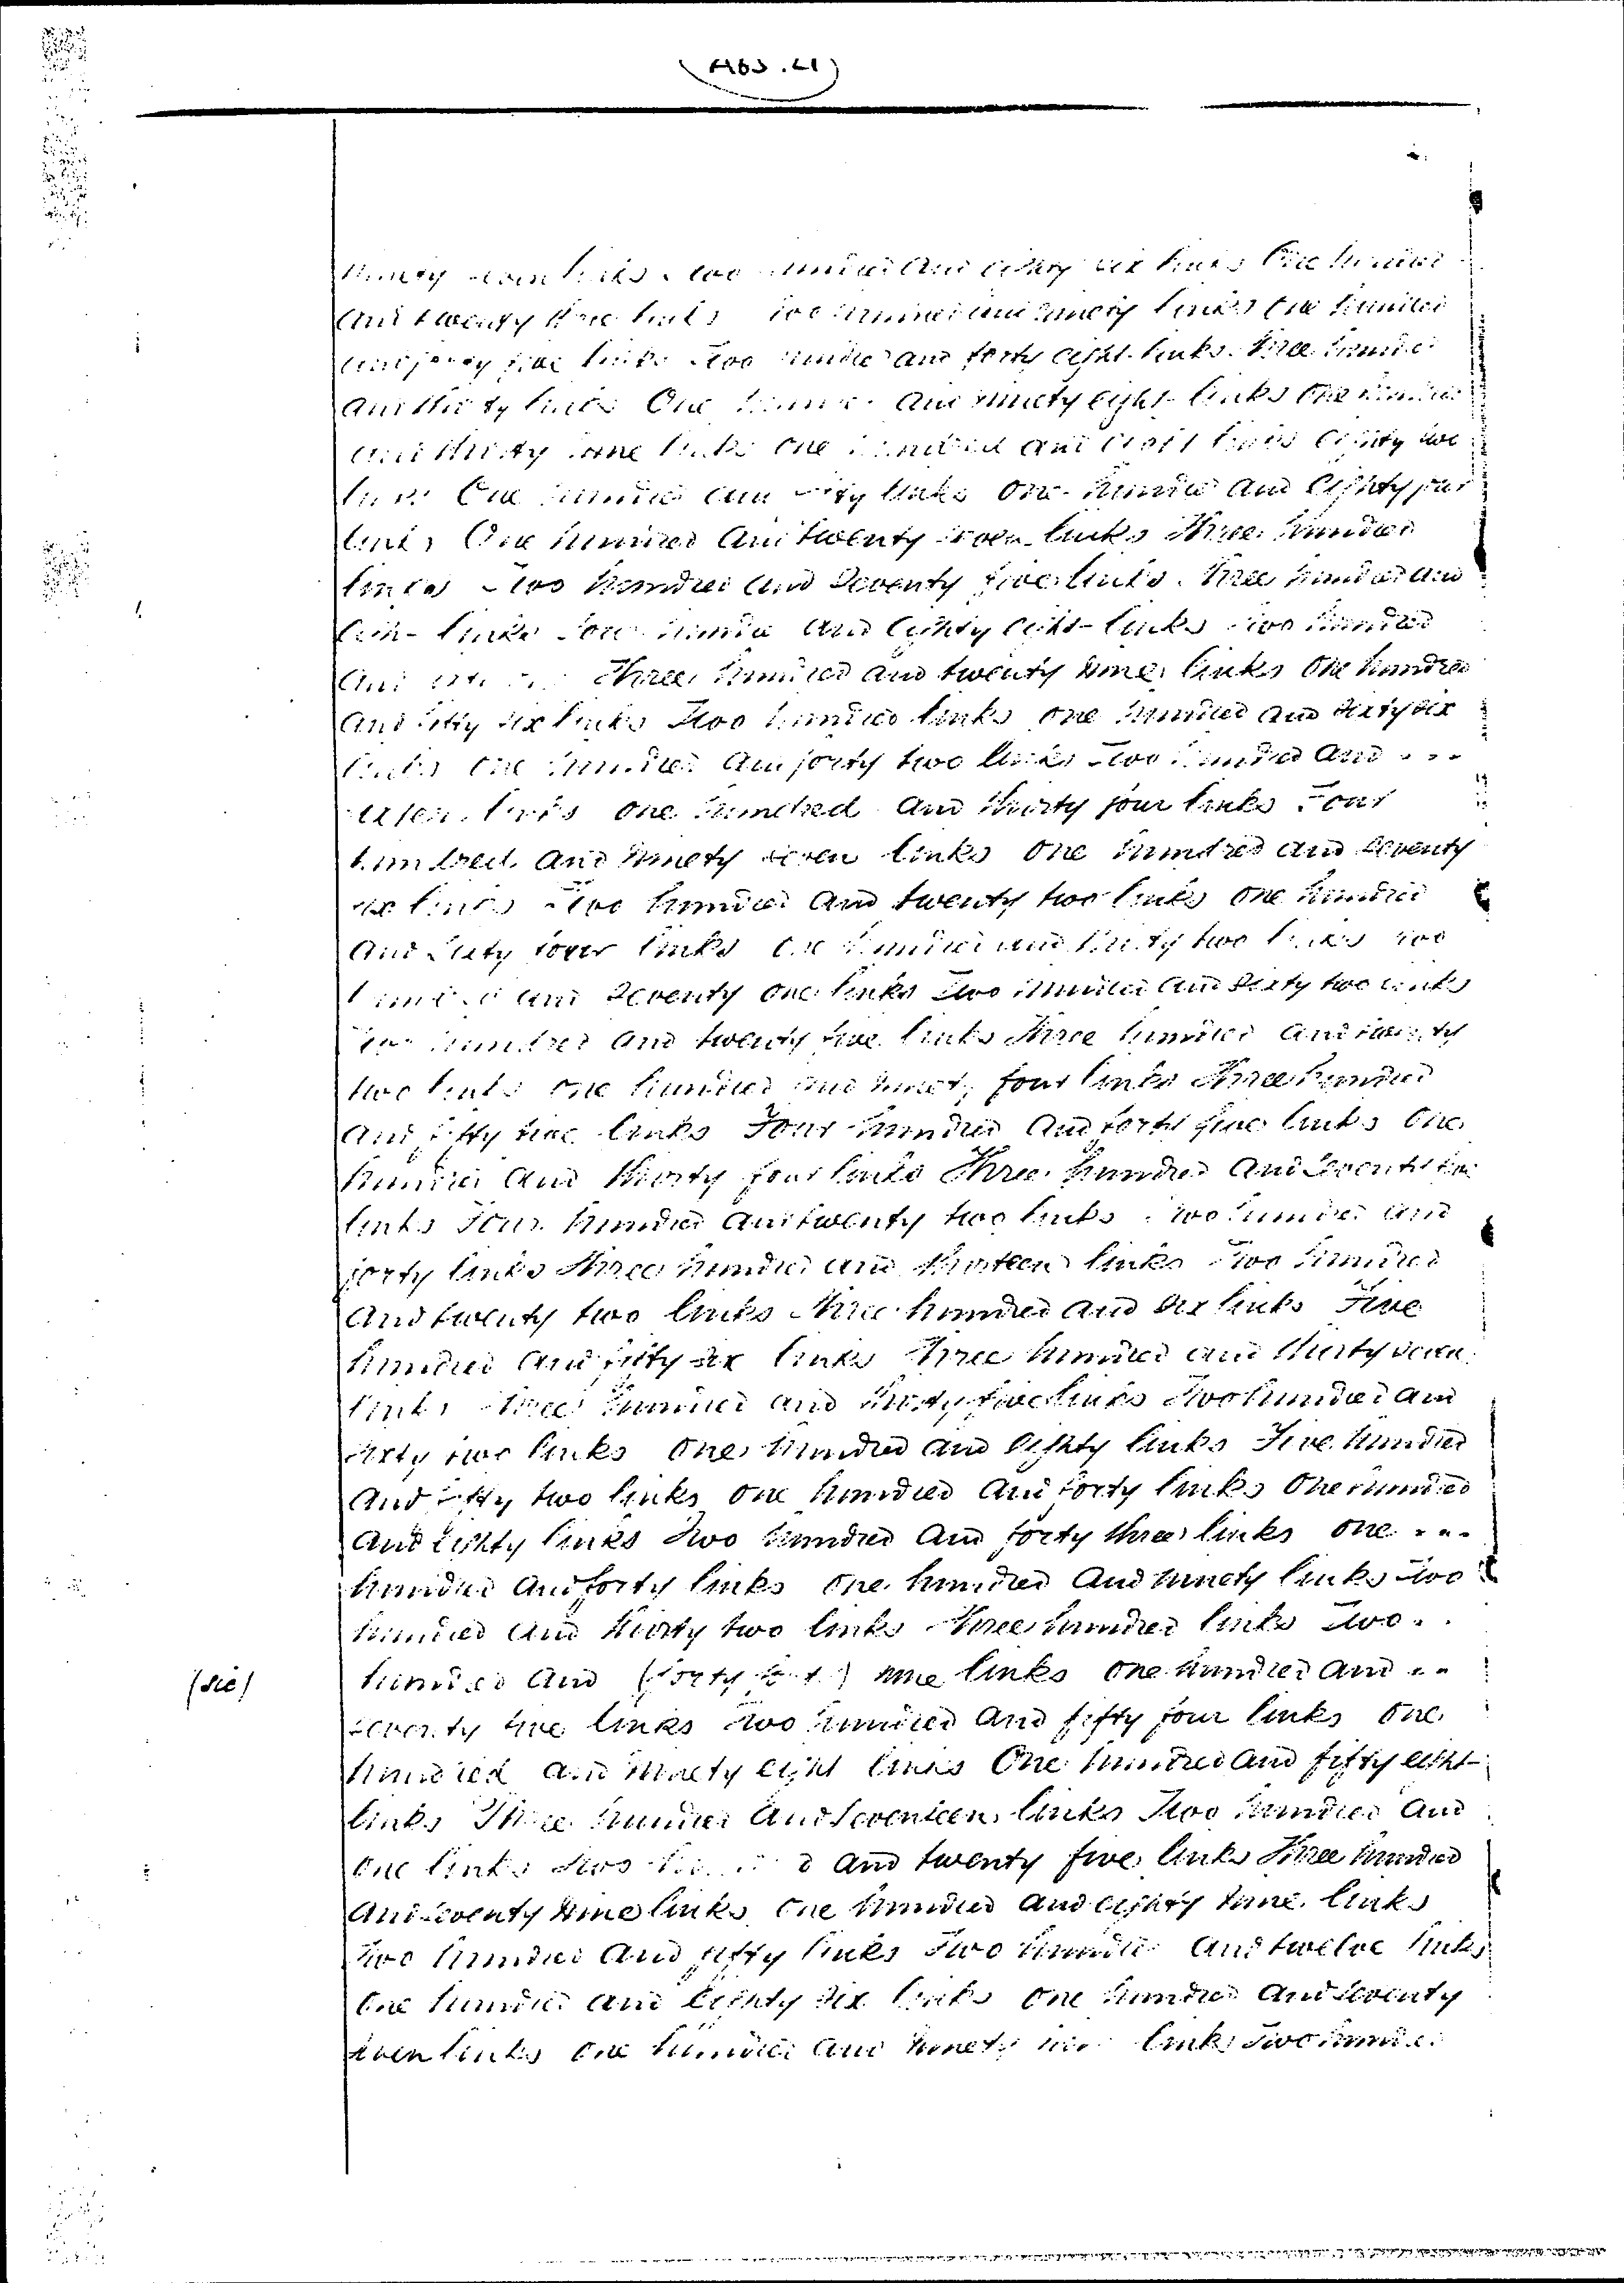 ninety seven links Two hundred and eighty six links One hundred
and twenty three links Two hundred and ninety links One hundred
and forty five links Two hundred and forty eight links Three hundred
and thirty links One hundred and ninety eight links One hundred
and thirty nine links one hundred and eight links eighty two
links One hundred and links One hundred and Eighty four
links One hundred and twenty seven links Three hundred
links Two hundred and Seventy five links Three hundred and
links Four hundred and Eighty eight links Two hundred
and Three hundred and twenty nine links One hundred
and fifty six links Two hundred links one hundred and sixty six
links One hundred and forty two links Two hundred and
links one hundred and thirty four links Four
hundred and ninety seven links one hundred and seventy
six links Two hundred and twenty two links one hundred
and sixty four links one hundred and thirty two links Two
hundred and Seventy one links Two hundred and sixty two links
hundred and twenty five links Three hundred and twenty
two links one hundred and ninety four links Three hundred
and fifty five links Four hundred and forty five links One
hundred and thirty four links Three hundred and Seventy
links Four hundred and twenty two links Two hundred and
forty links Three hundred and thirteen links Two hundred
and twenty two links Three hundred and six links Five
hundred and fifty six links Three hundred and thirty seven
links Three hundred and thirty five links Two hundred and
sixty two links One hundred and Eighty links Five hundred
and fifty two links one hundred and forty links One hundred
and Eighty links Two hundred and forty three links one
hundred and forty links one hundred and ninety links Two
hundred and thirty two links Three hundred links Two
(sic) hundred and (forty) nine links one hundred and
seventy five links Two hundred and fifty four links One
hundred and ninety eight links One hundred and fifty eight
links Three hundred and Seventeen links Two hundred and
one links Two hundred and twenty five links Three hundred
and seventy nine links One hundred and eighty nine links
Two hundred and fifty links Two hundred and twelve links
One hundred and Eighty six links one hundred and seventy
seven links one hundred and ninety links Two hundred